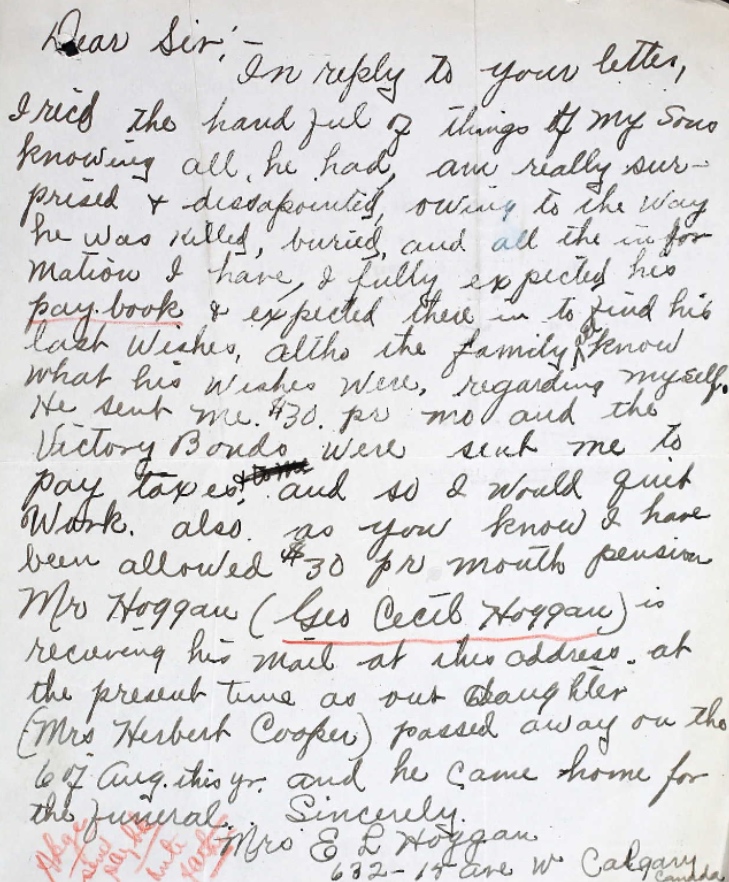 Dear Sir,-
In reply to your letter,
I ricd the hand ful of things of my Sons
knowing all, he had, am really sur-
prised & dissapointed, owing to the way
he was killed, buried, and all the infor
mation I have, I fully expected his
pay.book & expected there in to find his
last Wishes, altho the family all know
What his Wishes Were, regarding myself.
He sent me. $30. pr mo and the
Victory Bonds were sent me to
pay taxes, and so I would quit
Work. also. as you know I have
been allowed $30 pr month pension
Mr Hoggan (Geo Cecil Hoggan) is
receiving his mail at this address. at
the present time as our Daughter
(Mrs Herbert Cooper) passed away on the
6 of Aug. this yr. and he came home for
the funeral. Sincerely.
Mrs E L Hoggan
632-15 ave W Calgary
Canada